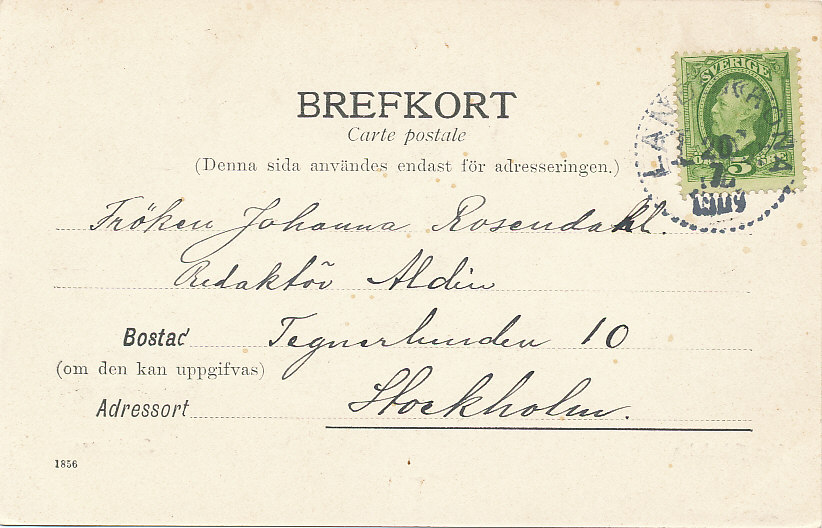 BREFKORT
Carte postale
(Denna sida användes endast för adresseringen.)
SVERIGE
5
LANDSKRONA
20
7
Fröken Johanna Rosendahl.
Redaktör Aldin
Bostad Tegnerlunden 10
(om den kan uppgifvas)
Adressort Stockholm.
1856